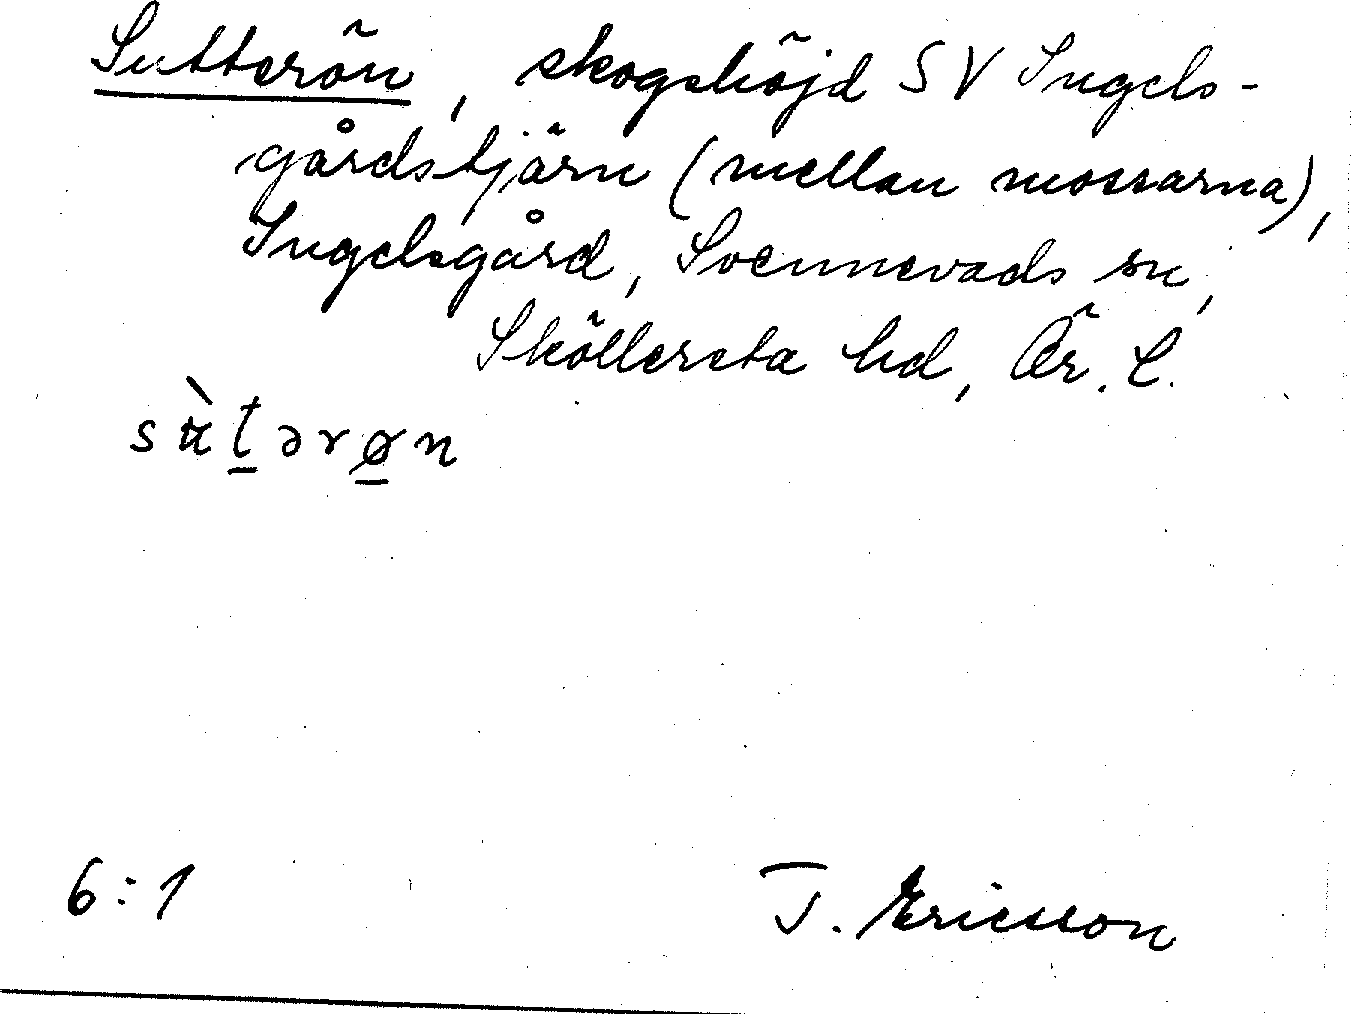 Sutterön, skogshöjd SV Ingels-
gårdstjärn (mellan mossarna),
Ingelsgård, Svennevads sn,
Sköllersta hd, Ör. L.
6:1
J. Ericsson